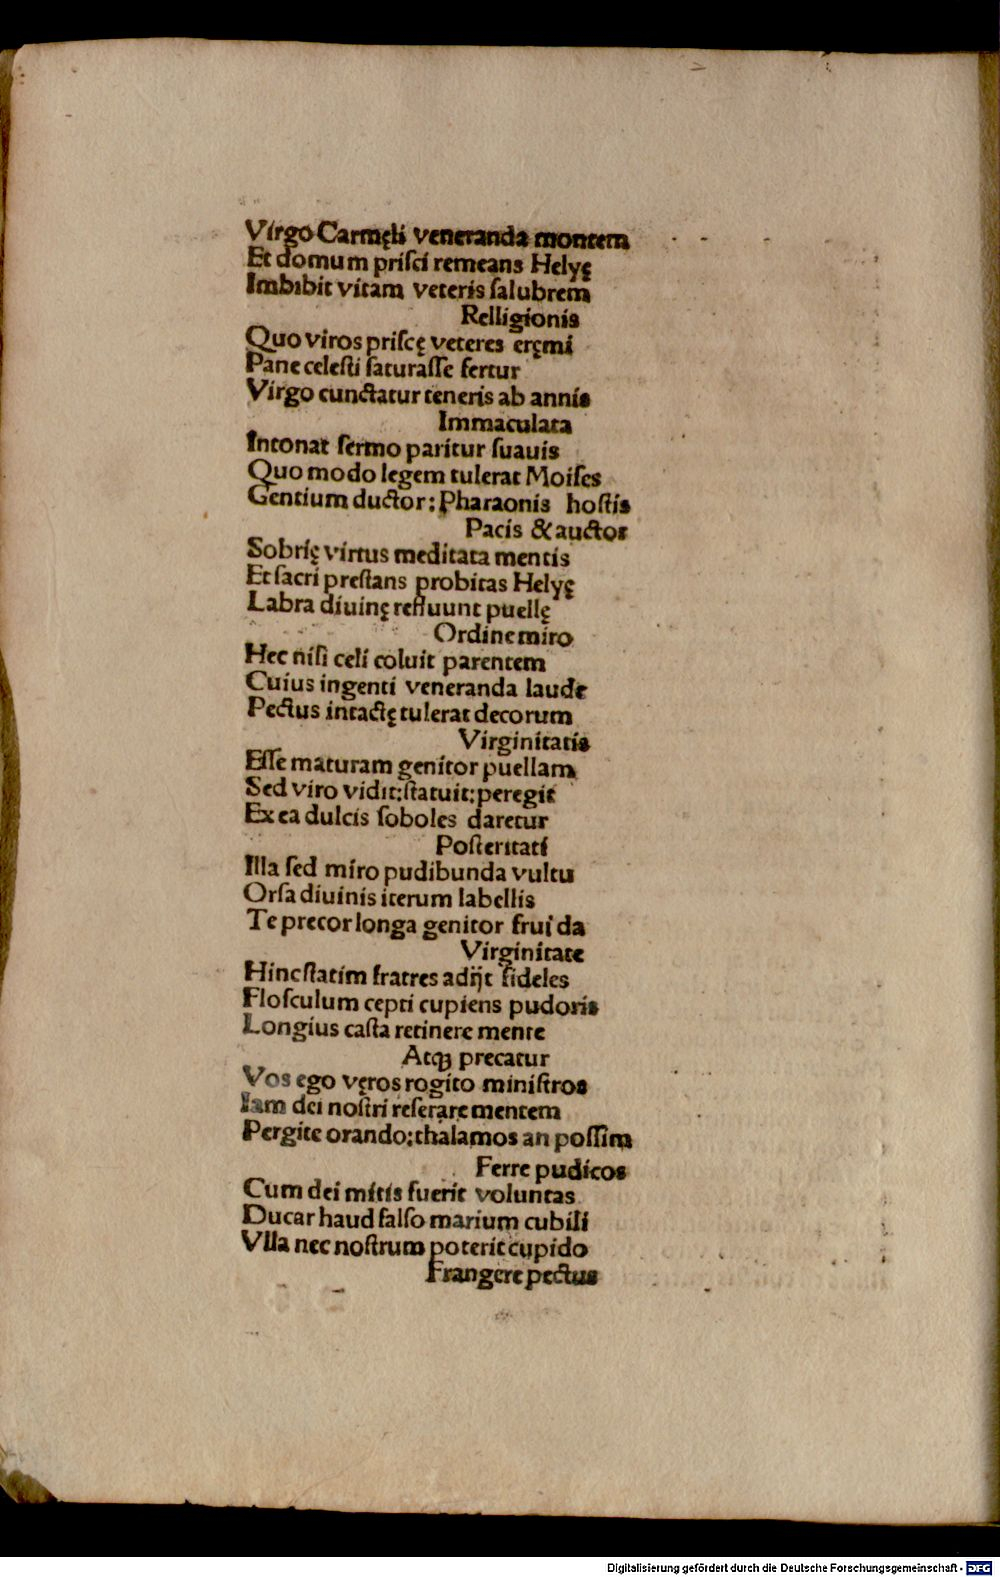 Virgo Carmęli veneranda montem
Et domum priſci remeans Helyę
Imbibit vitam veteris ſalubrem
Relligionis
Quo viros priſcę veteres eręmi
Pane celeſti ſaturaſſe fertur
Virgo cunctatur teneris ab annis
Immaculata
Intonat ſermo paritur ſuauis
Quo modo legem tulerat Moiſes
Gentium ductor: Pharaonis hoſtis
Pacis & auctor
Sobrię virtus meditata mentis
Et ſacri preſtans probitas Helyę
Labra diuinę reﬂuunt puellę
Ordine miro
Hec niſi celi coluit parentem
Cuius ingenti veneranda laude
Pectus intactę tulerat decorum
Virginitatis
Eſſe maturam genitor puellam
Sed viro vidit:ſtatuit:peregit
Ex ea dulcis ſoboles daretur
Poſteritati
Illa ſed miro pudibunda vultu
Orſa diuinis iterum labellis
Te precor longa genitor frui da
Virginitate
Hinc ſtatim fratres adijt fideles
Floſculum cepti cupiens pudoris
Longius caſta retinere mente
Atqꝫ precatur
Vos ego vęros rogito miniſtros
Iam dei noſtri reſerare mentem
Pergite orando:thalamos an poſſim
Ferre pudicos
Cum dei mitis fuerit voluntas
Ducar haud falſo marium cubili
Vlla nec noſtrum poterit cupido
Frangere pectus
Digitalisierung gefördert durch die Deutsche Forschungsgemeinschaft - DFG